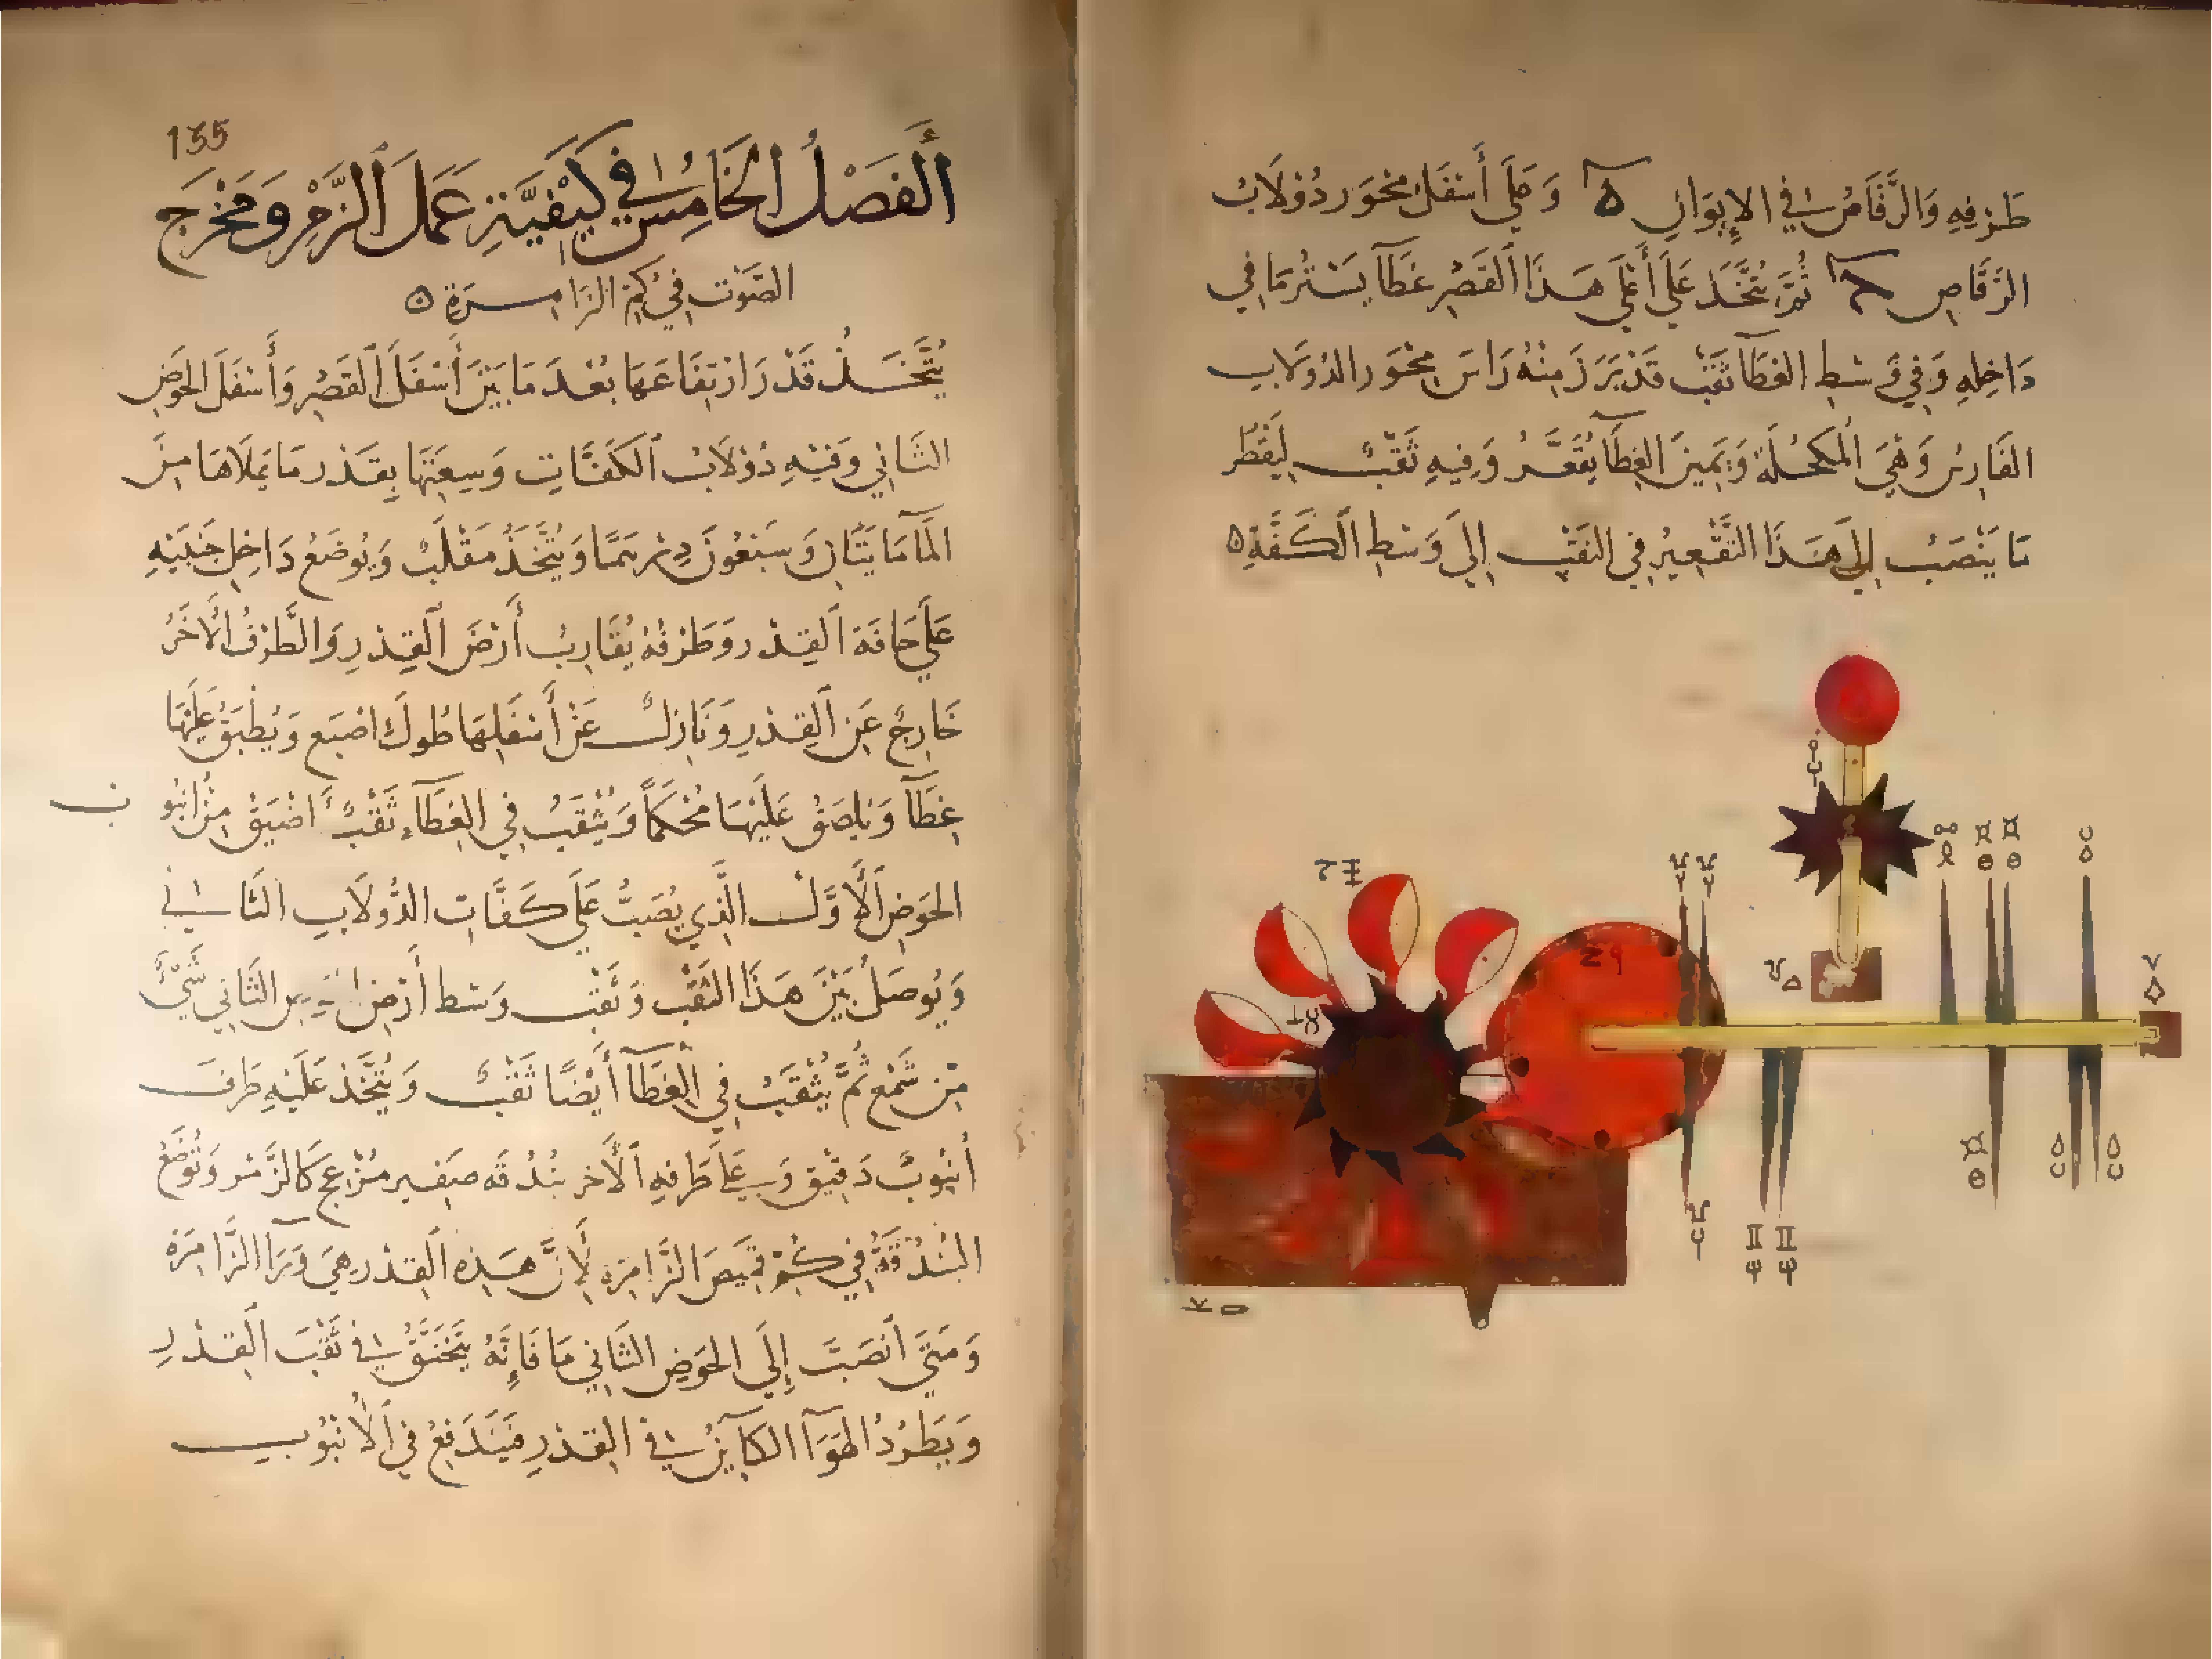 طرفه والرقاص في الإيوان ه وعلى أسفل محور دولاب
الرقاص ثم يتخذ على أعلى هذا القصر غطآ يستر ما في
داخله وفي وسط الغطآ ثقب قد برز منه راس محور الدولاب
الفارس وهي المكحلة ويمين الغطآ يقعر وفيه ثقب ليقطر
ما ينصب إلى هذا التقعير في الثقب إلى وسط الكفة ه
135
ألفصل الخامس في كيفية عمل الزمر ومخرج
الصوت في كم الزامرة ه
يتخذ قدر ارتفاعها بعد ما بين أسفل القصر وأسفل الحوض
الثاني وفيه دولاب الكفات وسعتها بقدر ما يملاها من
المآ مايتان وسبعون درهما ويتخذ مقلب ويوضع داخل جنبيه
على حافة القدر وطرفه يقارب أرض القدر والطرف الآخر
خارج عن القدر ونازل عن أسفلها طول اصبع ويطبق عليها
غطآ ويلصق عليها محكماً ويثقب في الغطآء ثقب أضيق من انبوب
الحوض الأول الذي يصب على كفات الدولاب الثاني
ويوصل بين هذا الثقب وثقب وسط أرض الثاني شيء
من شمع ثم يثقب في الغطآ أيضاً ثقب ويتخذ عليه طرف
أنبوب دقيق وعلى طرفه الآخر بندقه صفير مزعج كالزمر وتوضع
البندقة في كم قميص الزامره لأن هذه القدر هي ورآ الزامره
ومتى أنصب إلى الحوض الثاني ما فإنه يختنق في ثقب القدر
ويطرد الهوآ الكاين في القدر فيندفع في الأنبوب